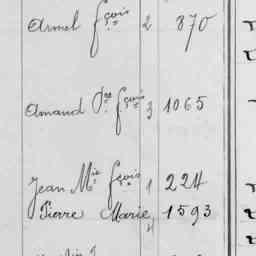 Armel fçois 2 870
Amand Pre fçois 3 1065
Jean Mie fçois 1 224
Pierre Marie 1593